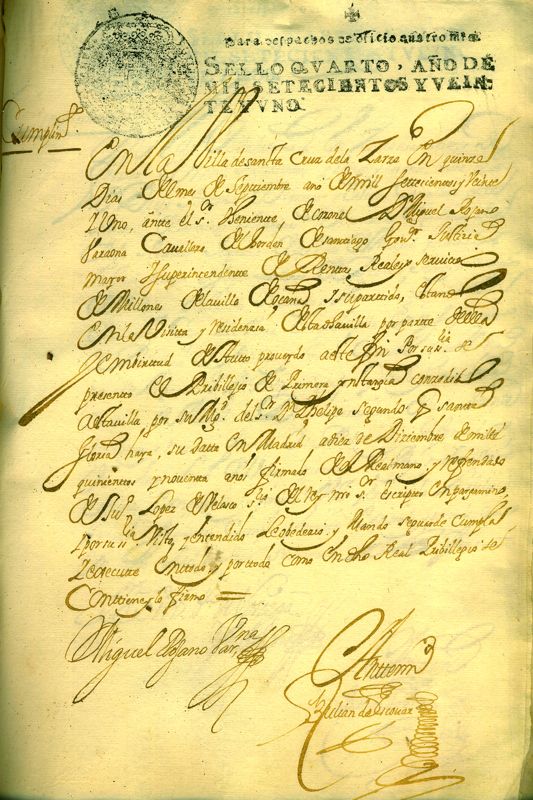 para despachos de oficio quatro mrs.
SELLO QVARTO, AÑO DE
MIL SETECIENTOS Y VEIN-
TE Y VNO.
Cumplim.to
En la Villa de sancta Cruz dela Zarza En quinze
Dias del mes de Septiembre año de mill settecientos y Veinte
Y Uno, ante el s.r theniente de coronel D. Miguel
Varaona Cavallero del horden de santiago Gov.or Justicia
mayor Y superintendente de Rentas Reales y servicio
de Millones de la villa de ocaña, y su partido, estando
En la Visitta y Residencia de esta dha villa por parte de ella
y En virttud de Autto proveido
presento el Pribillejio de Primera ynstancia concedido
a esta villa por su Mg.d del s.r D. Phelipe segundo q sancta
Gloria haya, su datta En Madrid a diez de Diziembre de mill
quinientos y noventa años firmado de su Real mano, y Refrendado
de Ju.o Lopez de Velasco s.rio del Rey nro s.r Escripto En pargamino,
Y por su s.ria Visto, y entendido Le obedecio y Mando se guarde Cumpla
Y execute En todo y por todo como En dho Real Pribillegio se
Conttiene y lo firmo =
Miguel Varaona
Antte mi
Julian de Escouar